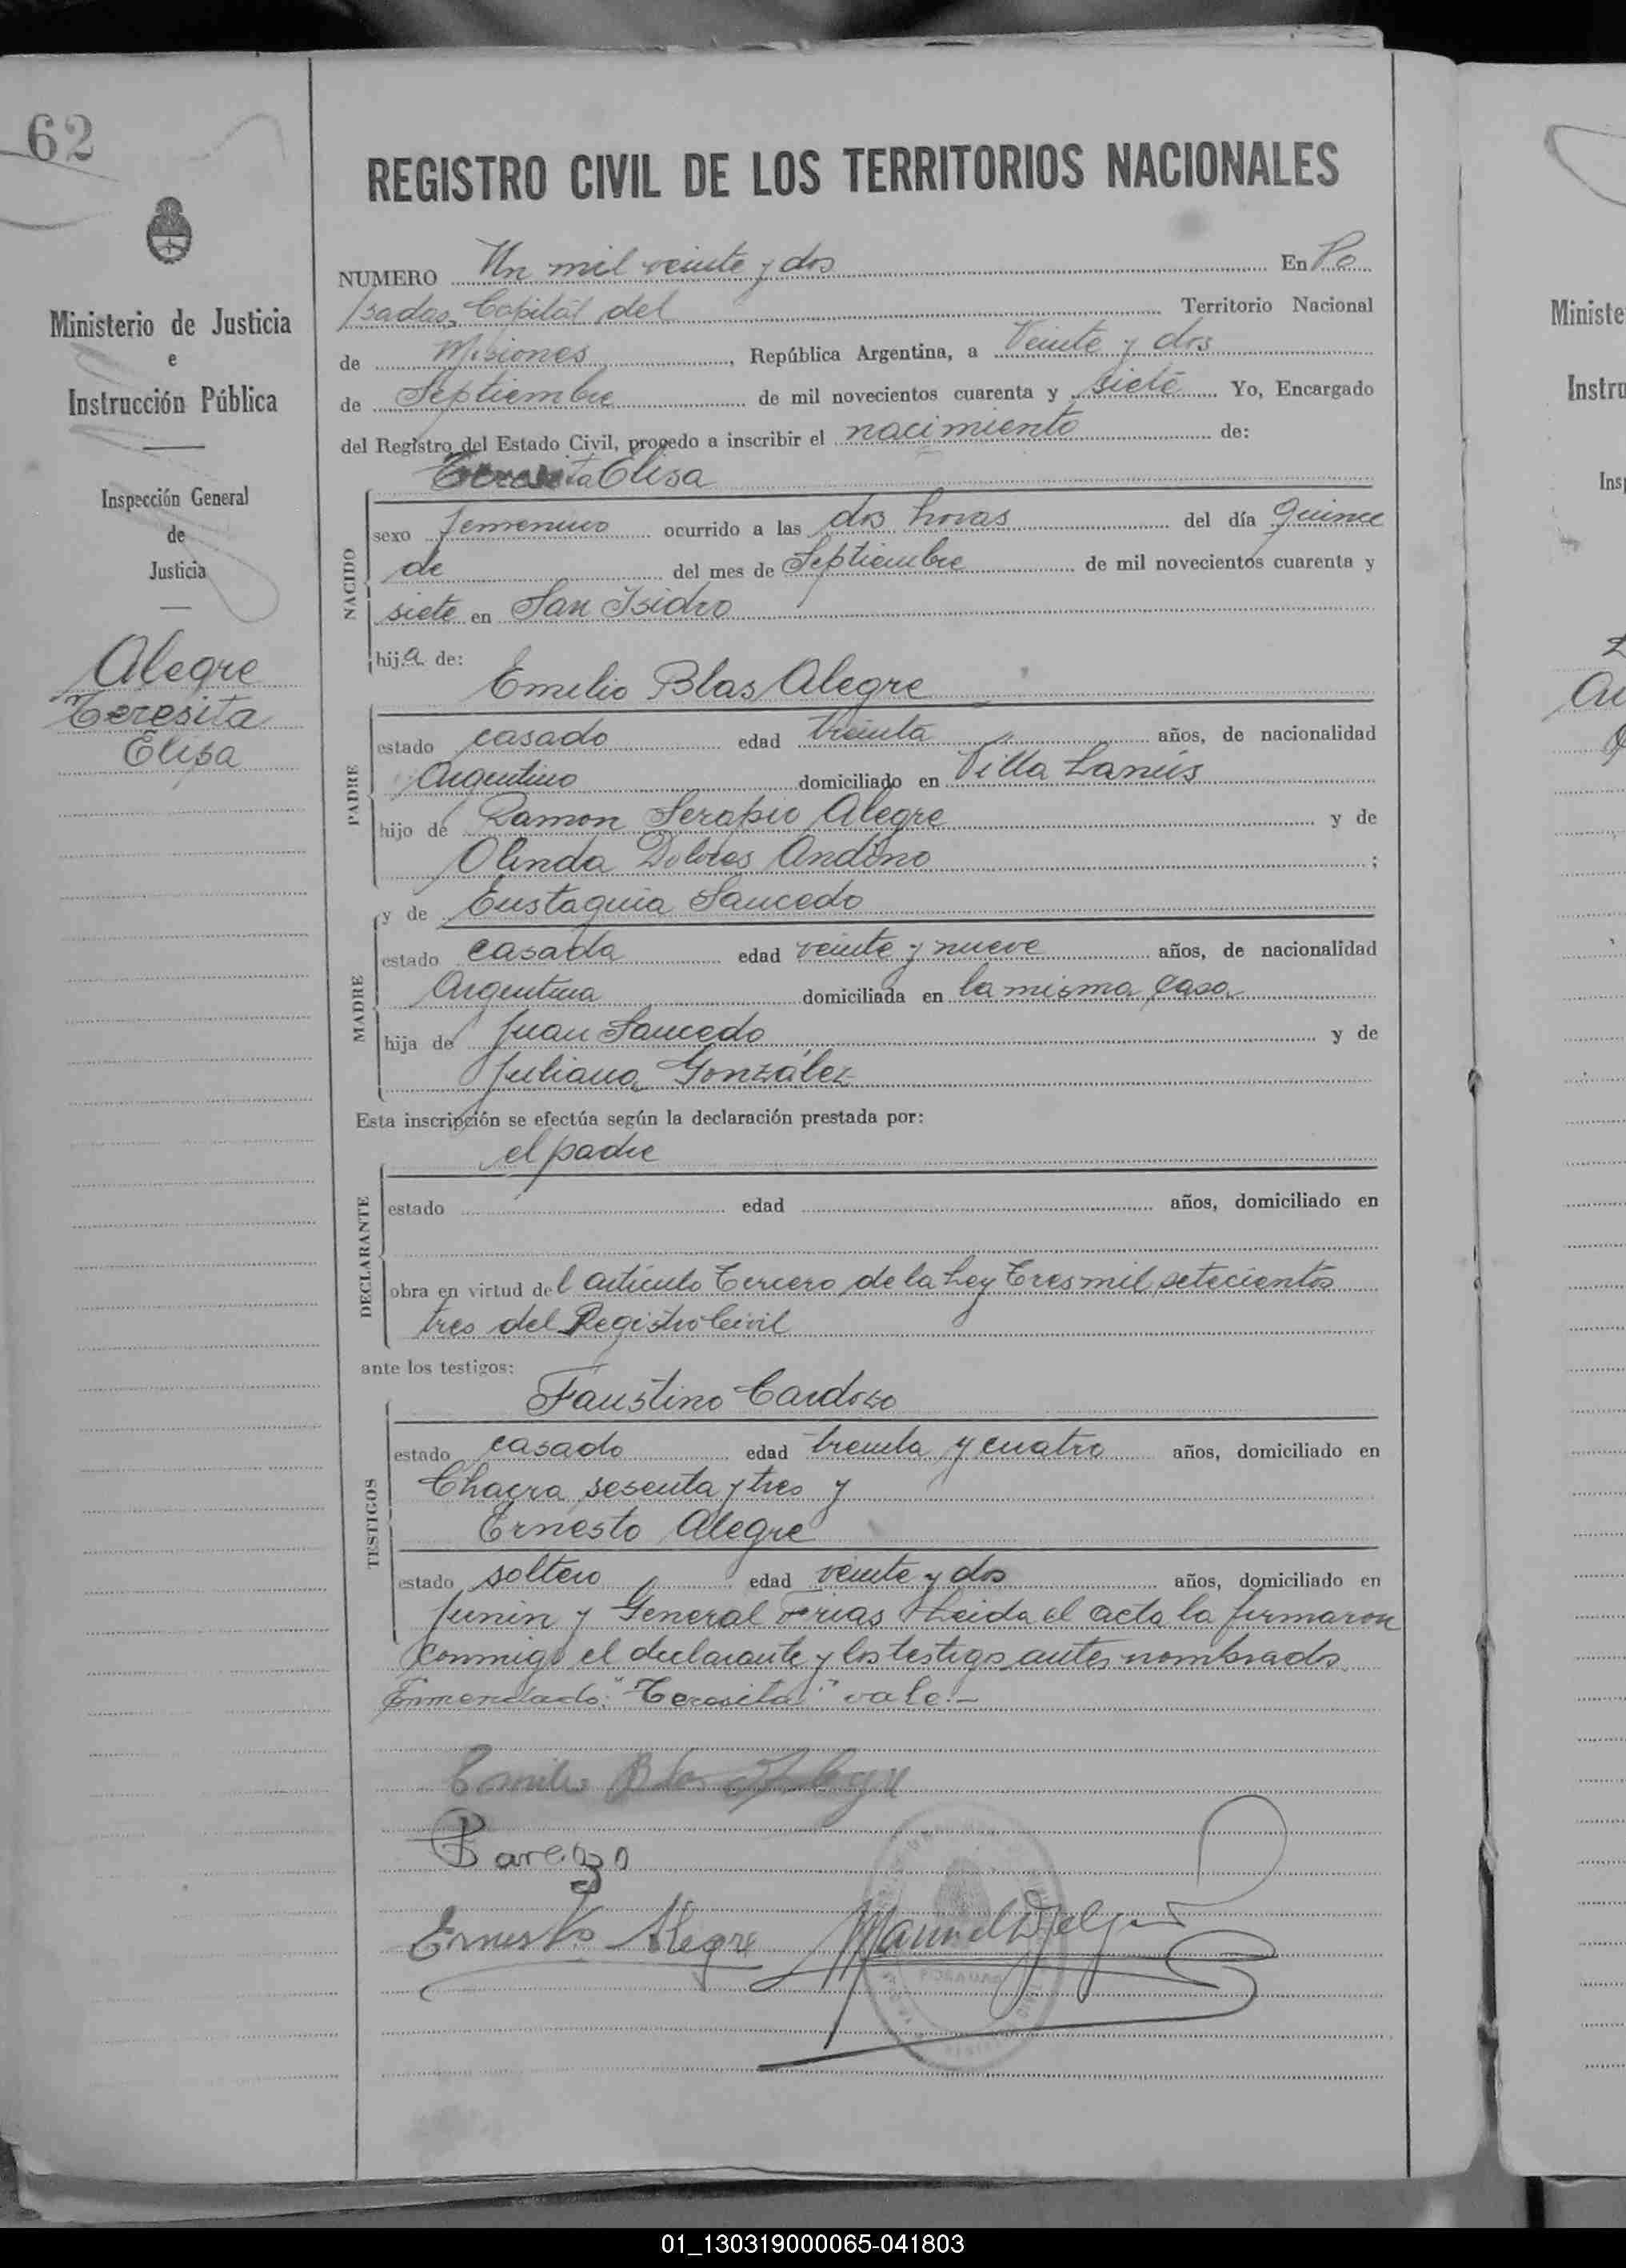 62
Ministerio de Justicia
e
Instrucción Pública
Inspección General
de
Justicia
Alegre
Teresita
Elisa
REGISTRO CIVIL DE LOS TERRITORIOS NACIONALES
NUMERO Un mil veinte y dos En Po
sadas, Capital del Territorio Nacional
de Misiones, República Argentina, a Veinte y dos
de Septiembre de mil novecientos cuarenta y siete Yo, Encargado
del Registro del Estado Civil, procedo a inscribir el nacimiento de:
Teresita Elisa
NACIDO
sexo femenino ocurrido a las dos horas del día quince
de del mes de Septiembre de mil novecientos cuarenta y
siete en San Isidro
hija de:
Emilio Blas Alegre
PADRE
estado casado edad treinta años, de nacionalidad
Argentino domiciliado en Villa Lanús
hijo de Ramon Serapio Alegre y de
Olinda Dolores Andino ;
y de Eustaquia Saucedo
MADRE
estado casada edad veinte y nueve años, de nacionalidad
Argentina domiciliada en la misma casa
hija de Juan Saucedo y de
Juliana González
Esta inscripción se efectúa según la declaración prestada por:
el padre
DECLARANTE
estado edad años, domiciliado en
obra en virtud del artículo Tercero de la Ley Tres mil setecientos
tres del Registro Civil
ante los testigos:
Faustino Cardozo
TESTIGOS
estado casado edad treinta y cuatro años, domiciliado en
Chacra sesenta y tres y
Ernesto Alegre
estado soltero edad veinte y dos años, domiciliado en
Junin y General Frias Leida el acta la firmaron
conmigo el declarante y los testigos antes nombrados.
Enmendado: "Teresita" vale.-
Emilio Blas Alegre
Ernesto Alegre
Ministe
Instru
Insp
01_130319000065-041803